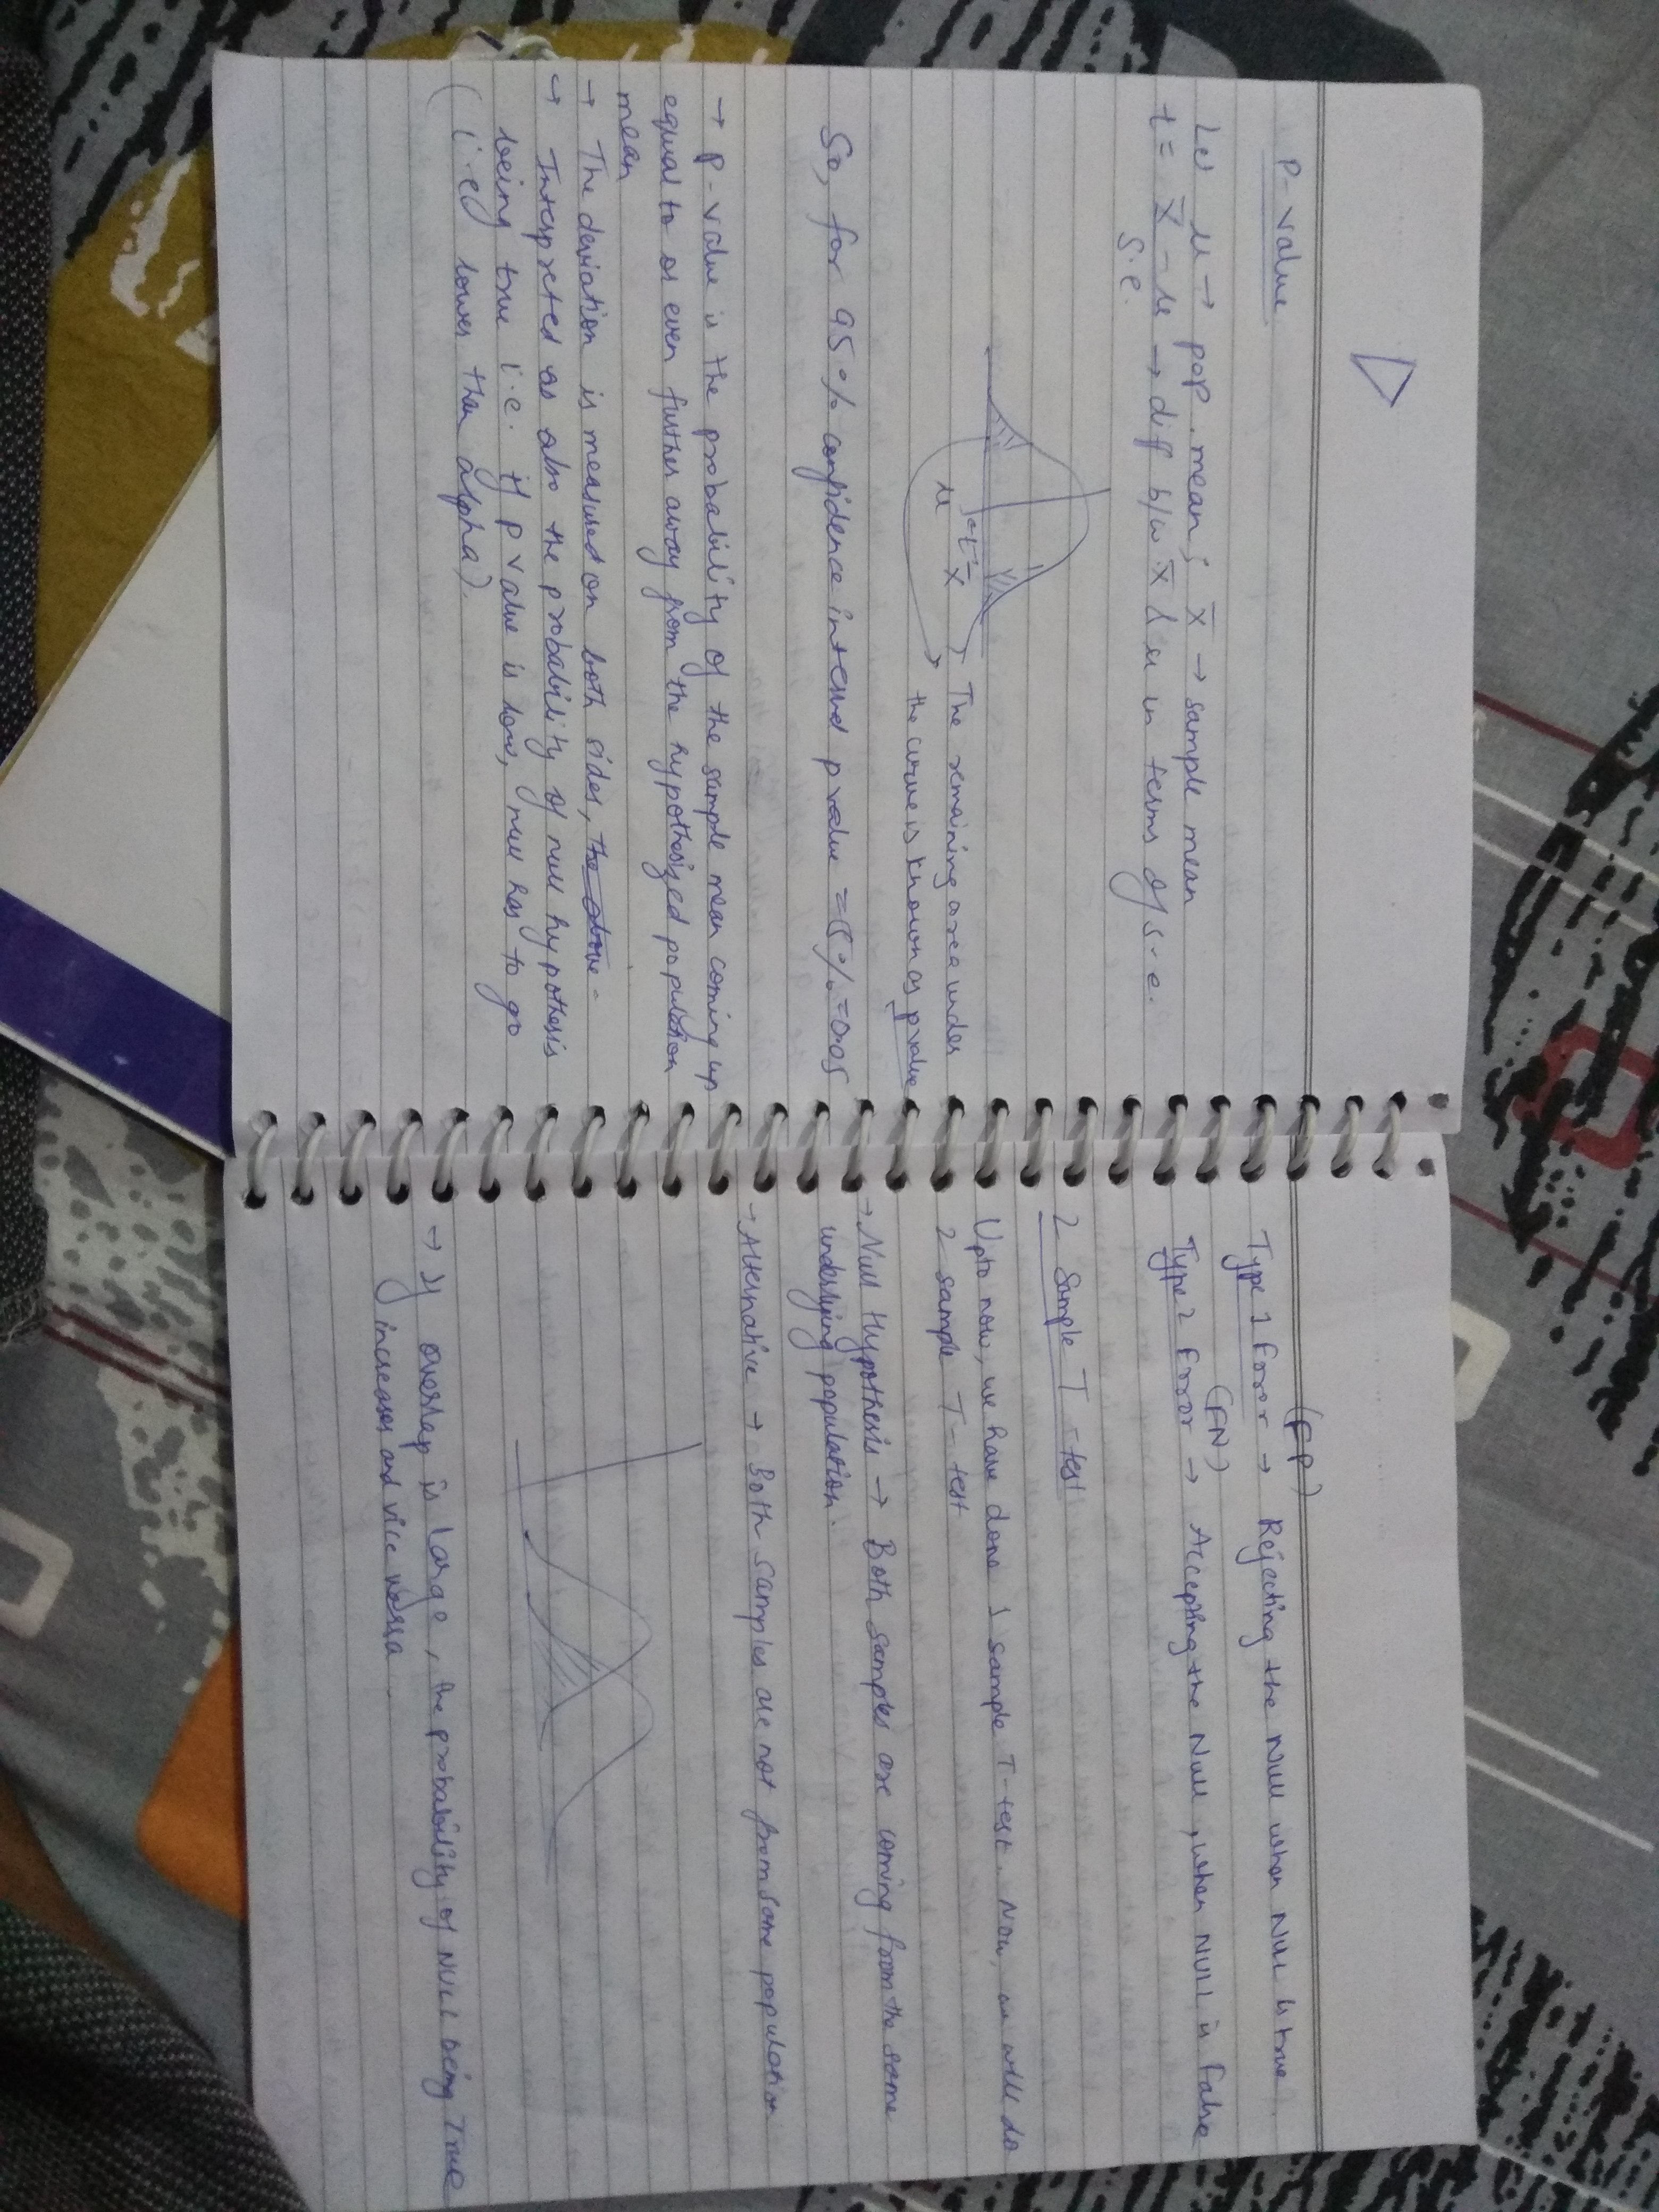 P-value
Let μ → pop. mean ; x̄ → sample mean
t = x̄ - μ → diff b/w x̄ & μ in terms of s.e.
s.e.
μ x̄
←t→
The remaining area under
the curve is known as p value
So, for 95% confidence interval p value = 5% = 0.05
→ P-value is the probability of the sample mean coming up
equal to or even further away from the hypothesized population
mean
→ The deviation is measured on both sides, the above -
→ Interpreted as also the probability of null hypothesis
being true i.e. if p value is low, null has to go
(i.e lower than alpha).
(FP)
Type 1 Error → Rejecting the Null when Null is true.
(FN)
Type 2 Error → Accepting the Null, when Null is False
2 Sample T-test
Upto now, we have done 1 sample T-test. Now, we will do
2 sample T-test
→ Null Hypothesis → Both samples are coming from the same
underlying population.
→ Alternative → Both samples are not from same population
→ If overlap is large, the probability of NULL being True
increases and vice versa.